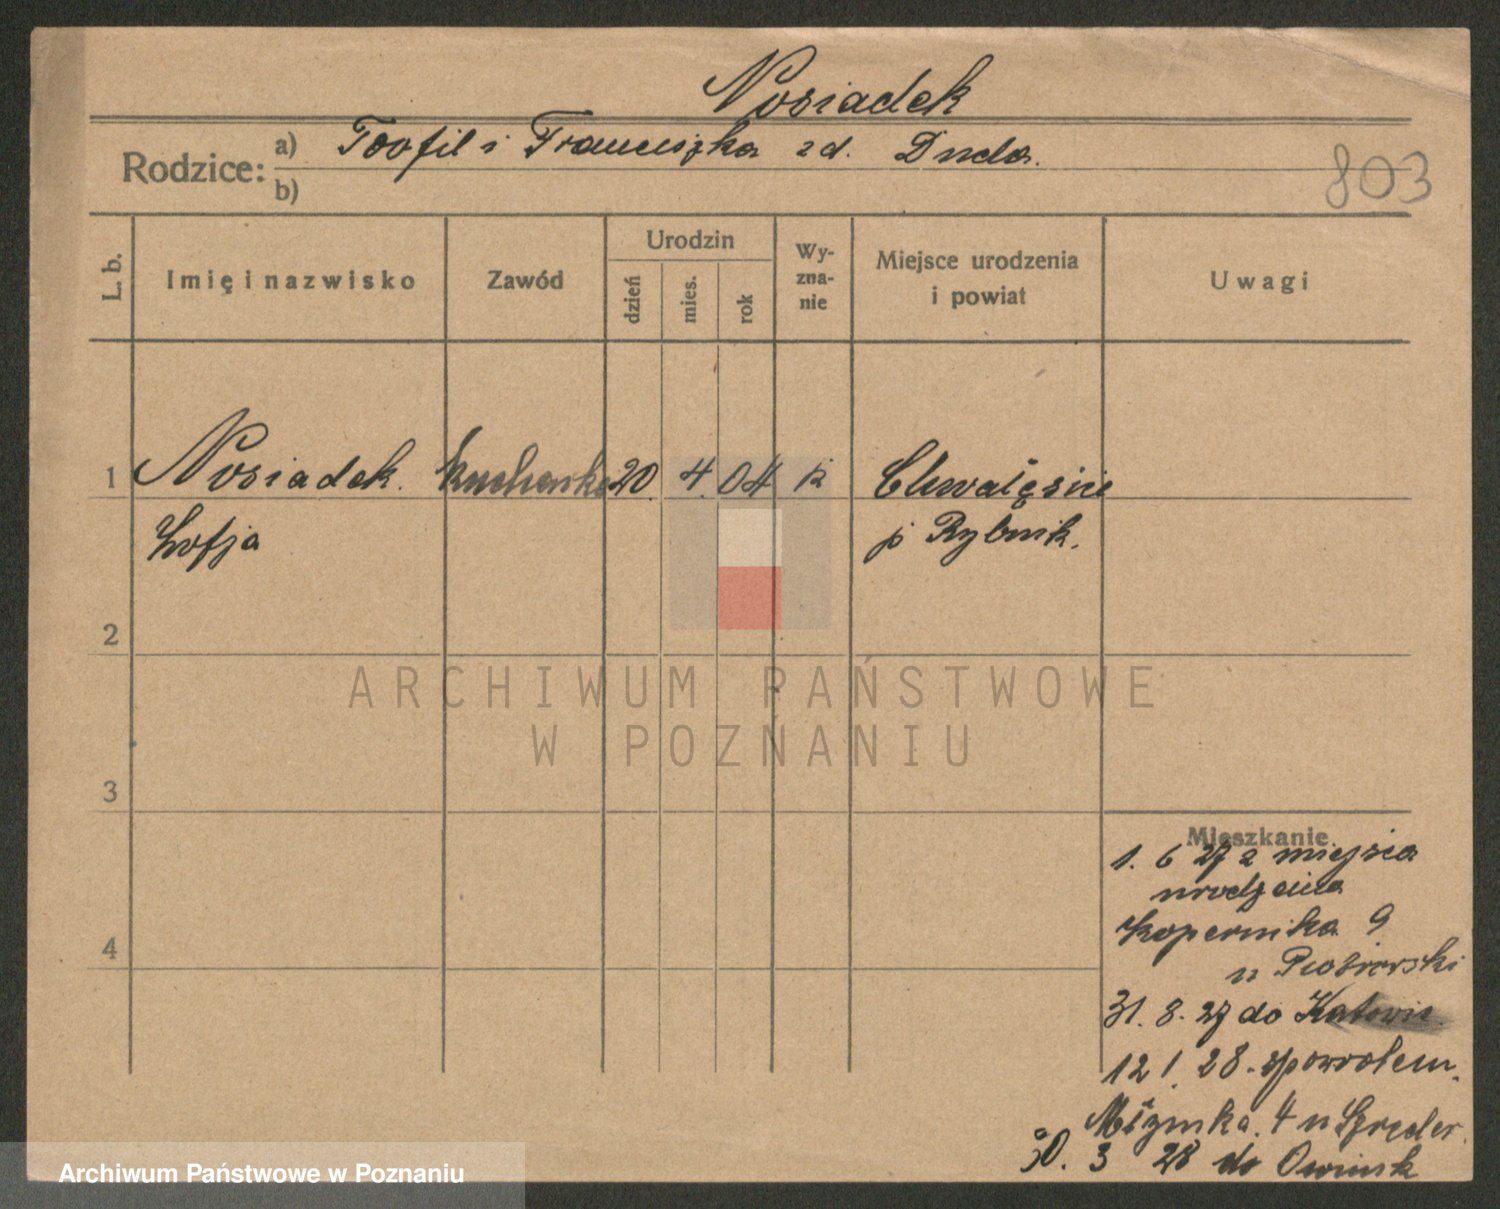 Nosiadek
Rodzice: a) Teofil i Franciszka zd. Duda.
b)
803
L. b.
Imię i nazwisko
Zawód
Urodzin
dzień
mies.
rok
Wy-
zna-
nie
Miejsce urodzenia
i powiat
Uwagi
1 Nosiadek. kucharka 20. 4. 04 k Chwalęcice
Zofja p Rybnik.
2
3
4
ARCHIWUM PAŃSTWOWE
W POZNANIU
Mieszkanie
1. 6 27 z miejsca
urodzenia
Kopernika 9
u Piotrowski
31. 8. 27 do Katowic.
12 1. 28. spowrotem.
4 u
30. 3 28 do Owinsk
Archiwum Państwowe w Poznaniu